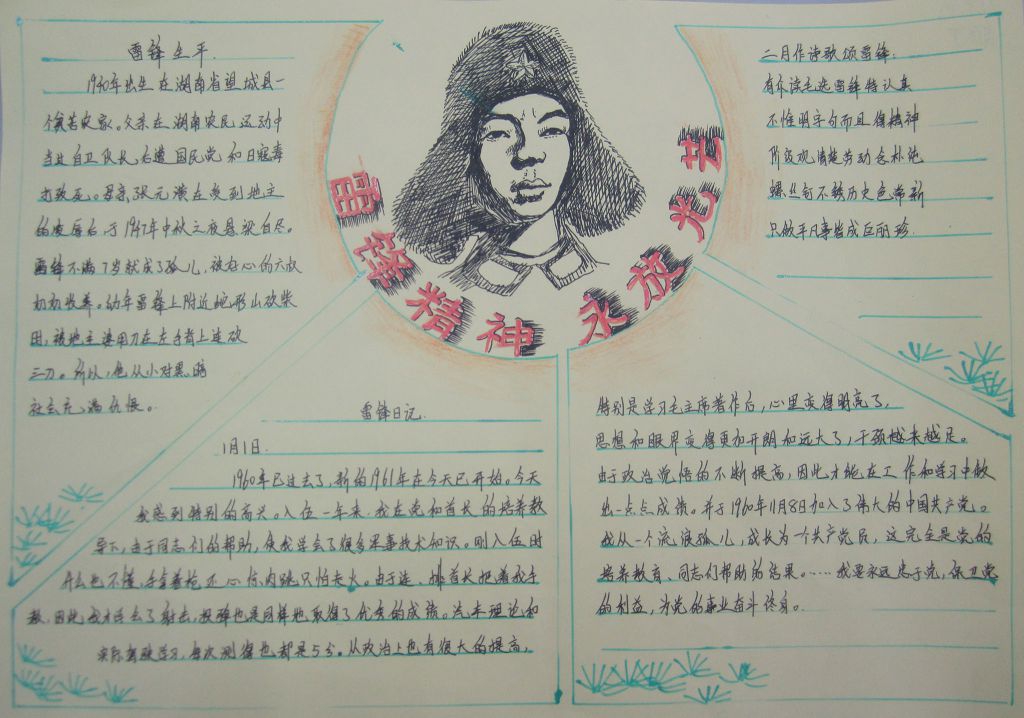 雷锋生平.
1940年出生在湖南省望城县一
个贫苦农家。父亲在湖南农民运动中
当过自卫队长,后遭国民党和日寇毒
打致死。母亲张元满在受到地主
的凌辱后,于1947年中秋之夜悬梁自尽。
雷锋不满7岁就成了孤儿,被好心的六叔
奶奶收养。幼年雷锋上附近蛇形山砍柴
时,被地主婆用刀在左手背上连砍
三刀。所以,他从小对黑暗
社会充满仇恨。
雷锋精神永放光芒
二月作诗歌颂雷锋.
有永读毛选雷锋特认真
不惟明字句而且得精神
阶级观清楚劳动念朴纯
螺丝钉不锈历史色常新
只做平凡事皆成巨丽珍.
雷锋日记.
1月1日.
1960年已过去了,新的1961年在今天已开始。今天
我感到特别的高兴。入伍一年来,我在党和首长的培养教
导下,由于同志们的帮助,使我学会了很多军事技术知识。刚入伍时
什么也不懂,手拿着枪还心惊肉跳只怕走火。由于连、排首长把着我手
教,因此,我才学会了射击,投弹也是同样地取得了优秀的成绩。汽车理论和
实际驾驶学习,每次测得也都是5分。从政治上也有很大的提高,
特别是学习毛主席著作后,心里变得明亮了,
思想和眼界变得更加开朗和远大了,干劲越来越足。
由于政治觉悟的不断提高,因此才能在工作和学习中做
出一点点成绩。并于1960年11月8日加入了伟大的中国共产党。
我从一个流浪孤儿,成长为一个共产党员,这完全是党的
培养教育、同志们帮助的结果。……我要永远忠于党,保卫党
的利益,为党的事业奋斗终身。